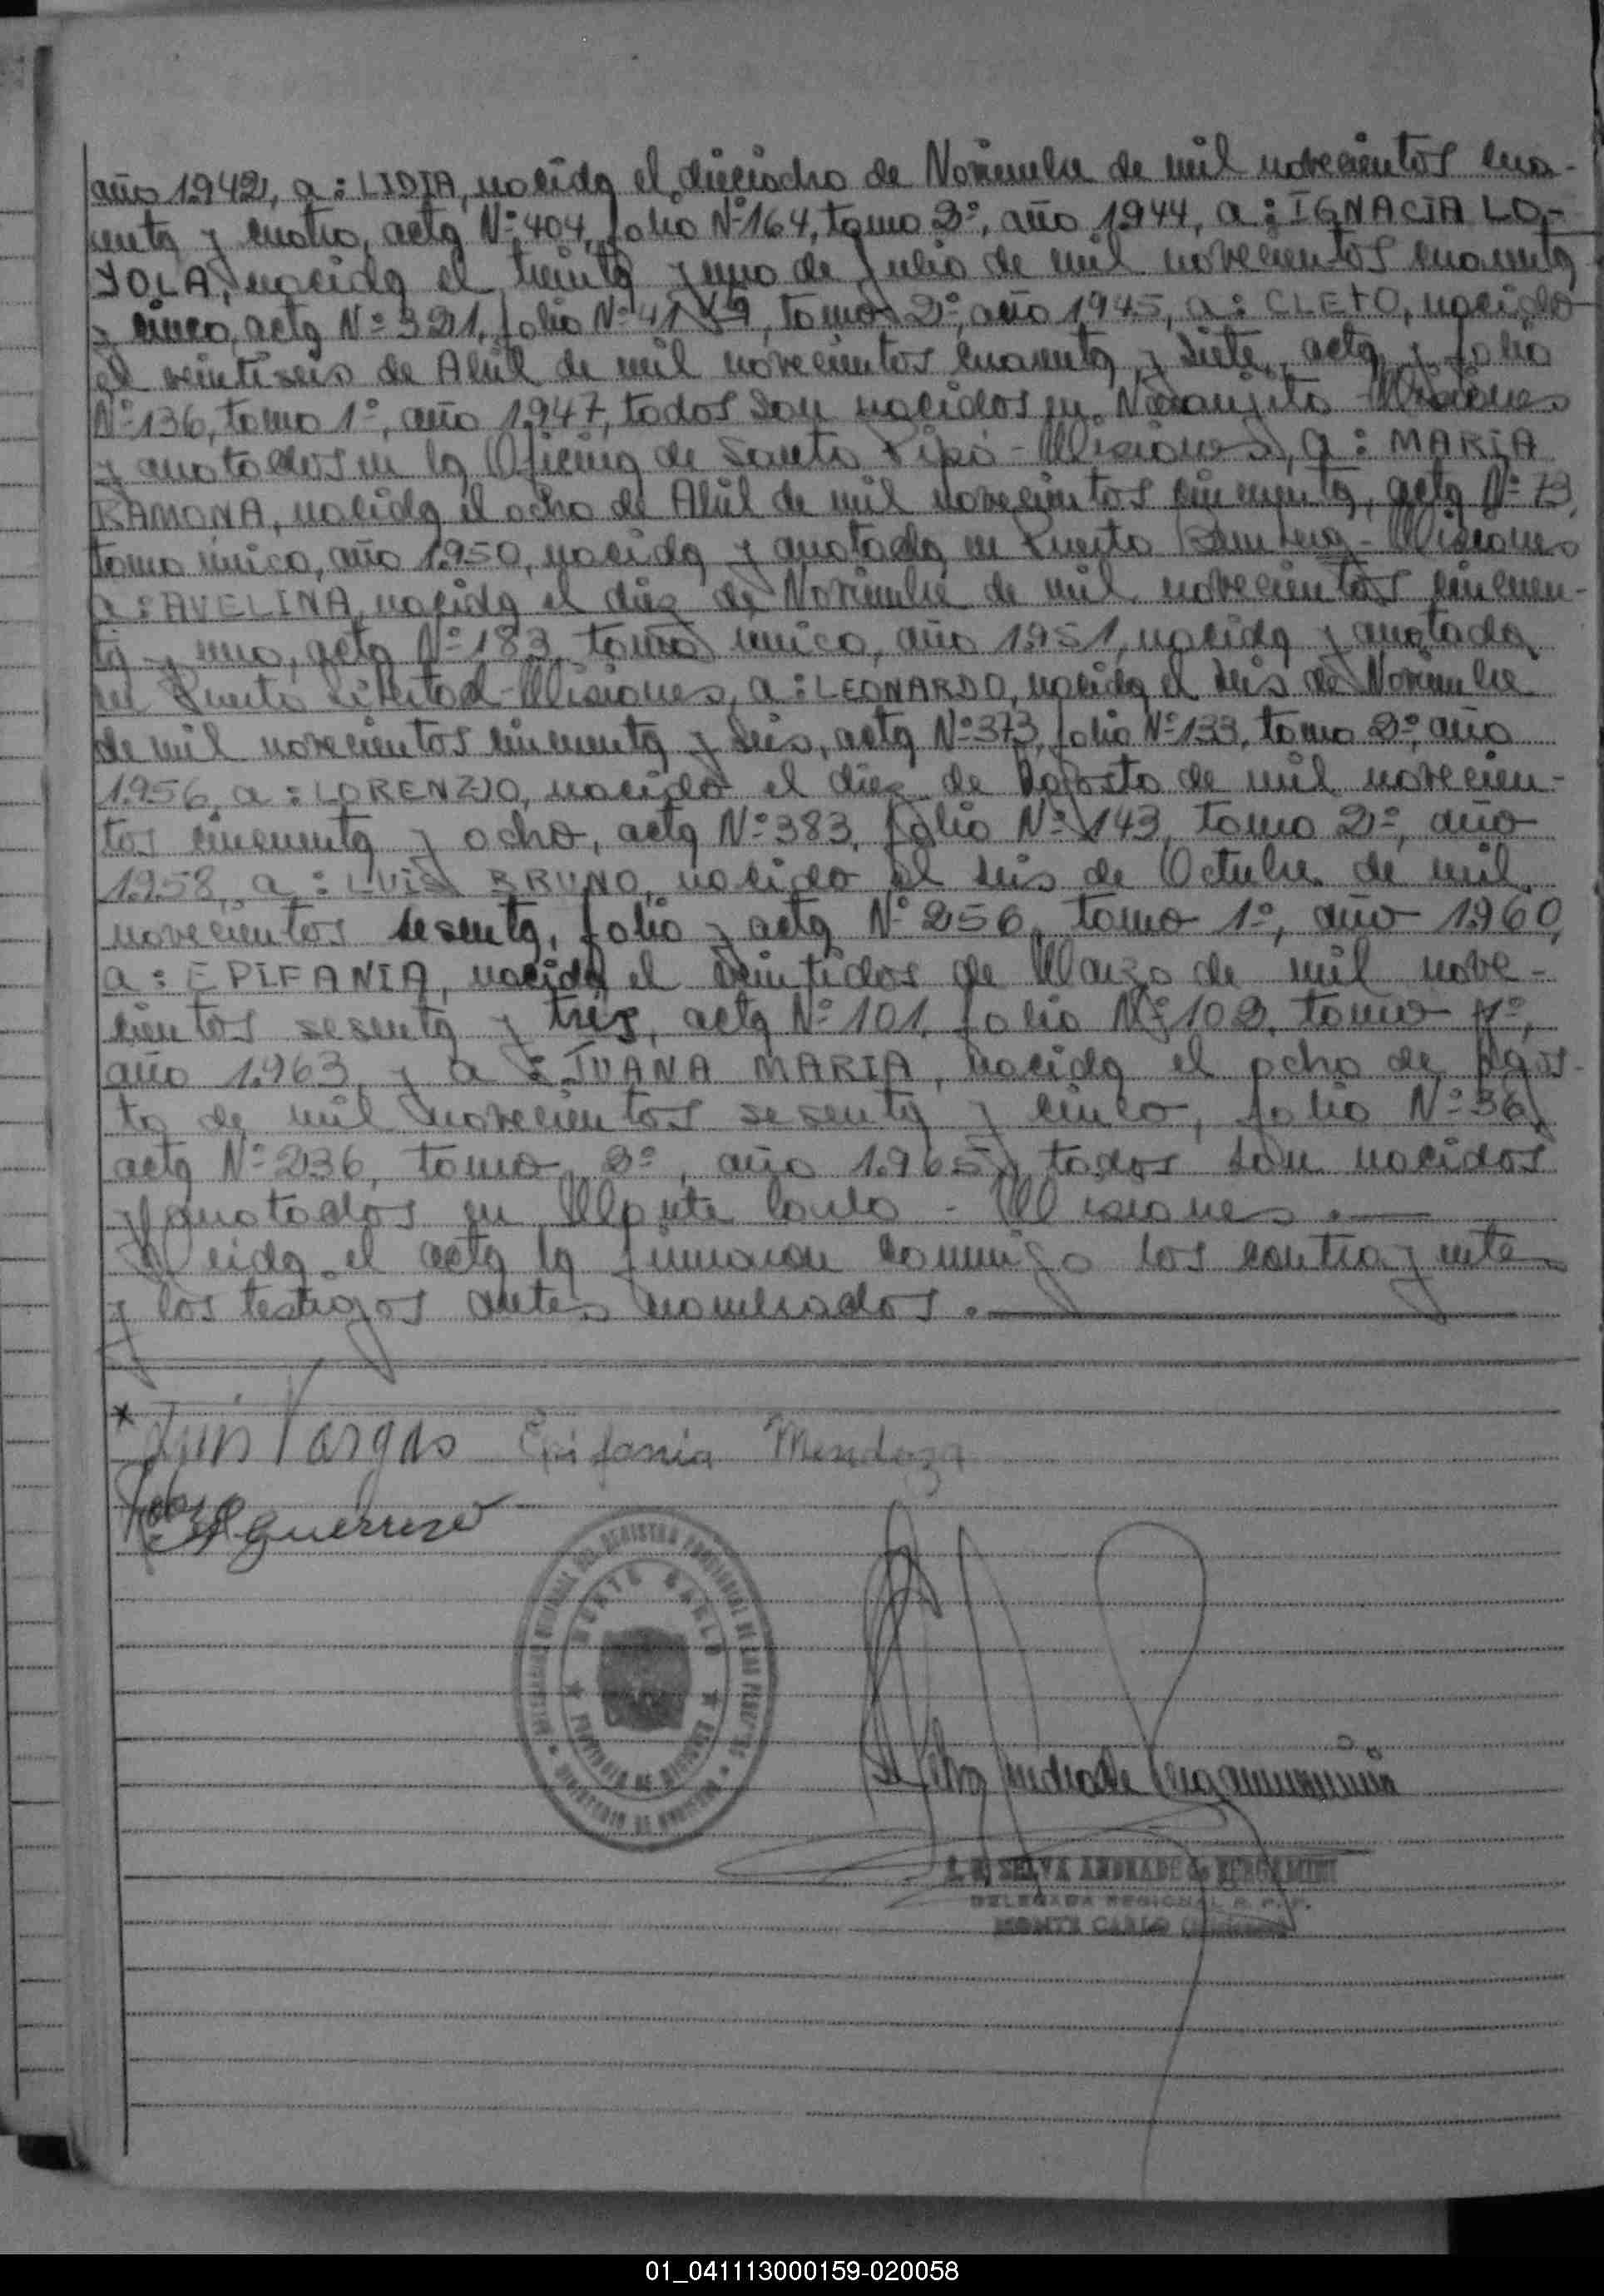 año 1.942, a: LIDIA, nacida el dieciocho de Noviembre de mil novecientos cua-
renta y cuatro, acta Nº 404, folio Nº 164, tomo 2º, año 1.944, a: IGNACIA LO-
YOLA, nacida el treinta y uno de Julio de mil novecientos cuarenta
y cinco, acta Nº 321, folio Nº 41, tomo 2º, año 1945, a: CLETO, nacido
el veintiseis de Abril de mil novecientos cuarenta y siete, acta y folio
Nº 136, tomo 1º, año 1.947, todos son nacidos en Naranjito - Misiones
y anotados en la Oficina de Santo Pipó - Misiones, a: MARIA
RAMONA, nacida el ocho de Abril de mil novecientos cincuenta, acta Nº 73,
tomo único, año 1.950, nacida y anotada en Puerto Bemberg - Misiones
a: AVELINA, nacida el diez de Noviembre de mil novecientos cincuen-
ta y uno, acta Nº 183, tomo único, año 1.951, nacida y anotada
en Puerto Libertad - Misiones, a: LEONARDO, nacido el seis de Noviembre
de mil novecientos cincuenta y seis, acta Nº 373, folio Nº 133, tomo 2º, año
1.956, a: LORENZO, nacido el diez de Agosto de mil novecien-
tos cincuenta y ocho, acta Nº 383, folio Nº 143, tomo 2º, año
1.958, a: LUIS BRUNO, nacido el seis de Octubre de mil
novecientos sesenta, folio y acta Nº 256, tomo 1º, año 1.960,
a: EPIFANIA, nacida el veintidos de Marzo de mil nove-
cientos sesenta y tres, acta Nº 101, folio Nº 102, tomo 1º,
año 1.963, y a: JUANA MARIA, nacida el ocho de Agos-
to de mil novecientos sesenta y cinco, folio Nº 36,
acta Nº 236, tomo 2º, año 1.965, todos son nacidos
y anotados en Monte Carlo - Misiones.
Leida el acta la firmaron conmigo los contrayentes
y los testigos antes nombrados.
Luis Vargas Epifania Mendoza
Guerrero
MONTE CARLO
PROVINCIA DE MISIONES
Selva Andrade
SELVA ANDRADE de BERGAMINI
DELEGADA REGIONAL R. P. P.
MONTE CARLO
01_041113000159-020058